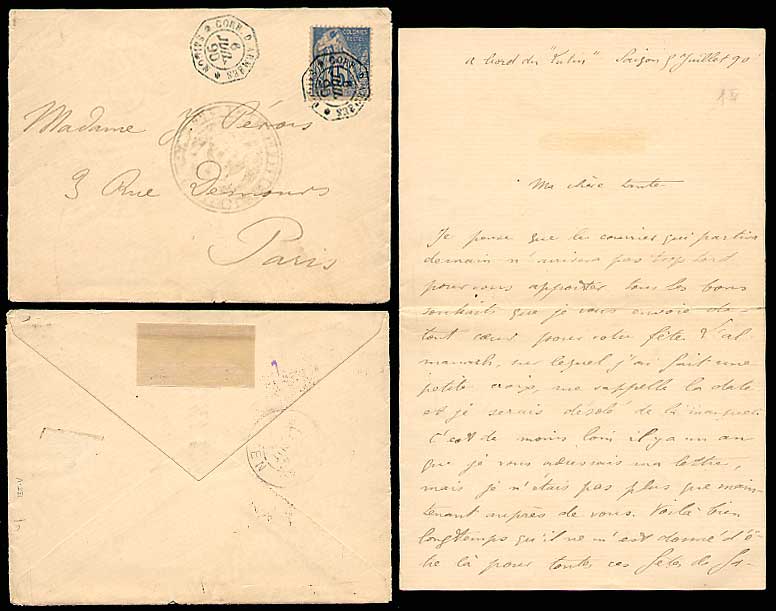 CORR. D'ARMÉES
SAIGON
9
JUIL
90
COLONIES
POSTES
15
CORR. D'ARMÉES
SAIGON
9
JUIL
90
Madame
3 Rue Demours
Paris
a bord du "Lutin" Saigon 8 Juillet 90
Ma chère tante
Je pense que le courrier qui partira
demain n'arrivera pas trop tard
pour vous apporter tous les bons
souhaits que je vous envoie de
tout cœur pour votre fête. L'al
manach, sur lequel j'ai fait une
petite croix, me rappelle la date
et je serais désolé de la manquer.
C'est de moins loin il y a un an
que je vous adressais ma lettre,
mais je n'étais pas plus que main-
tenant auprès de vous. Voilà bien
longtemps qu'il ne m'est donné d'ê-
tre là pour toutes ces fêtes de fa-